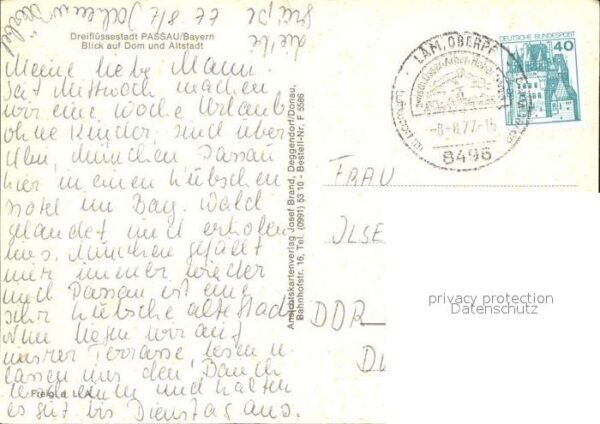 Dreiflüssestadt PASSAU/Bayern
Blick auf Dom und Altstadt
Meine liebe Mami.
Seit Mittwoch machen
wir eine Woche Urlaub
ohne Kinder. Sind über
Ulm, München Passau
hier in einem hübschen
Hotel im Bay. Wald
gelandet und erholen
uns. München gefällt
mir immer wieder
und Passau ist eine
sehr hübsche alte Stadt
Nun liegen wir auf
unsrer Terrasse, lesen u.
lassen uns den Bauch
und halten
es gut bis Dienstag aus.
7/8 77
Ansichtskartenverlag Josef Brand, Deggendorf/Donau,
Bahnhofstr. 16, Tel. (0991) 53 10 - Bestell-Nr. F 5586
LAM, OBERPF
8496
DEUTSCHE BUNDESPOST
40
FRAU
ILSE
DDR
privacy protection
Datenschutz